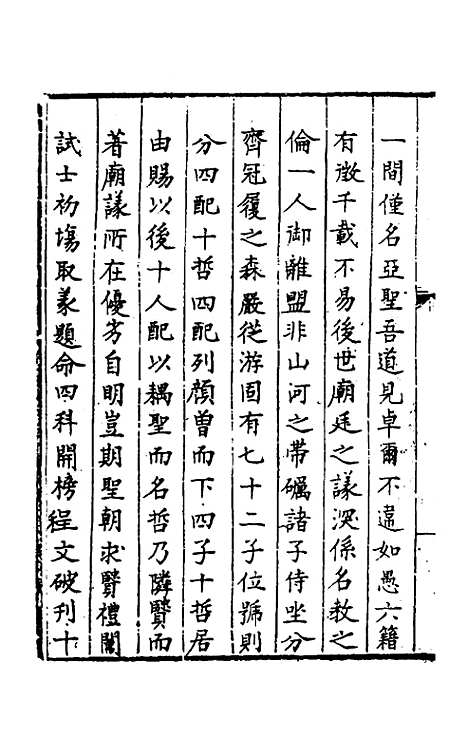 一間僅名亞聖吾道見卓爾不違如愚六籍
有徴千載不易後世廟廷之議深係名教之
倫一人御離盟非山河之帶礪諸子侍坐分
齊冠履之森嚴從游固有七十二子位號則
分四配十哲四配列顔曽而下四子十哲居
由賜以後十人配以耦聖而名哲乃隣賢而
著廟議所在優劣自明豈期聖朝求賢禮闈
試士初塲取義題命四科開榜程文破刋十